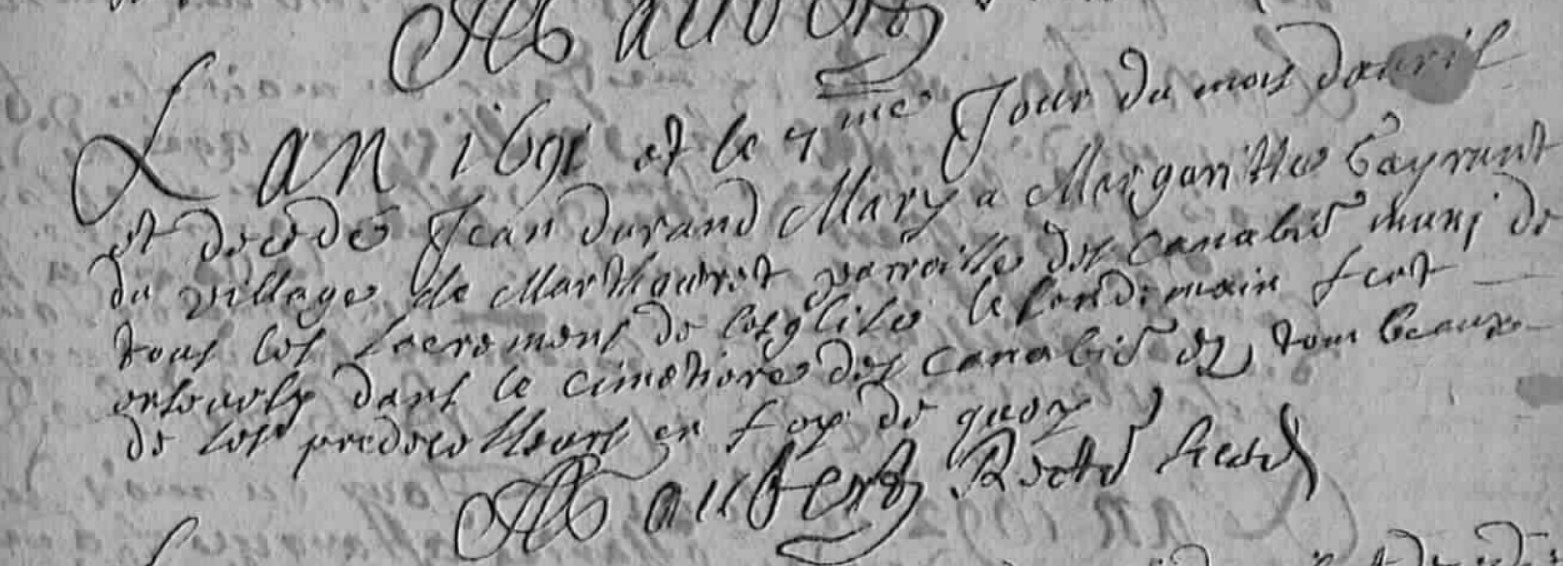 Maubert
L an 1691 et le 7me Jour du mois dauril
et decede Jean durand Mary a Margueritte Gayraut
du village de Marthouret parroisse des canabis muni de
tous les sacremens de lesglise le lendemain feut
ensevely dans le cimetiere des canabis ez tombeaux
de ses predecesseurs en foy de quoy
Maubert